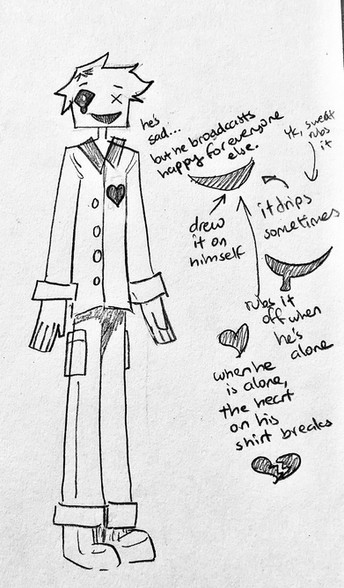 he's
sad...
but he broadcasts
happy for everyone
else.
sweat
rubs
it
drew
it on
himself
it drips
sometimes
rubs it
off when
he's
alone
when he
is alone,
the heart
on his
shirt breaks